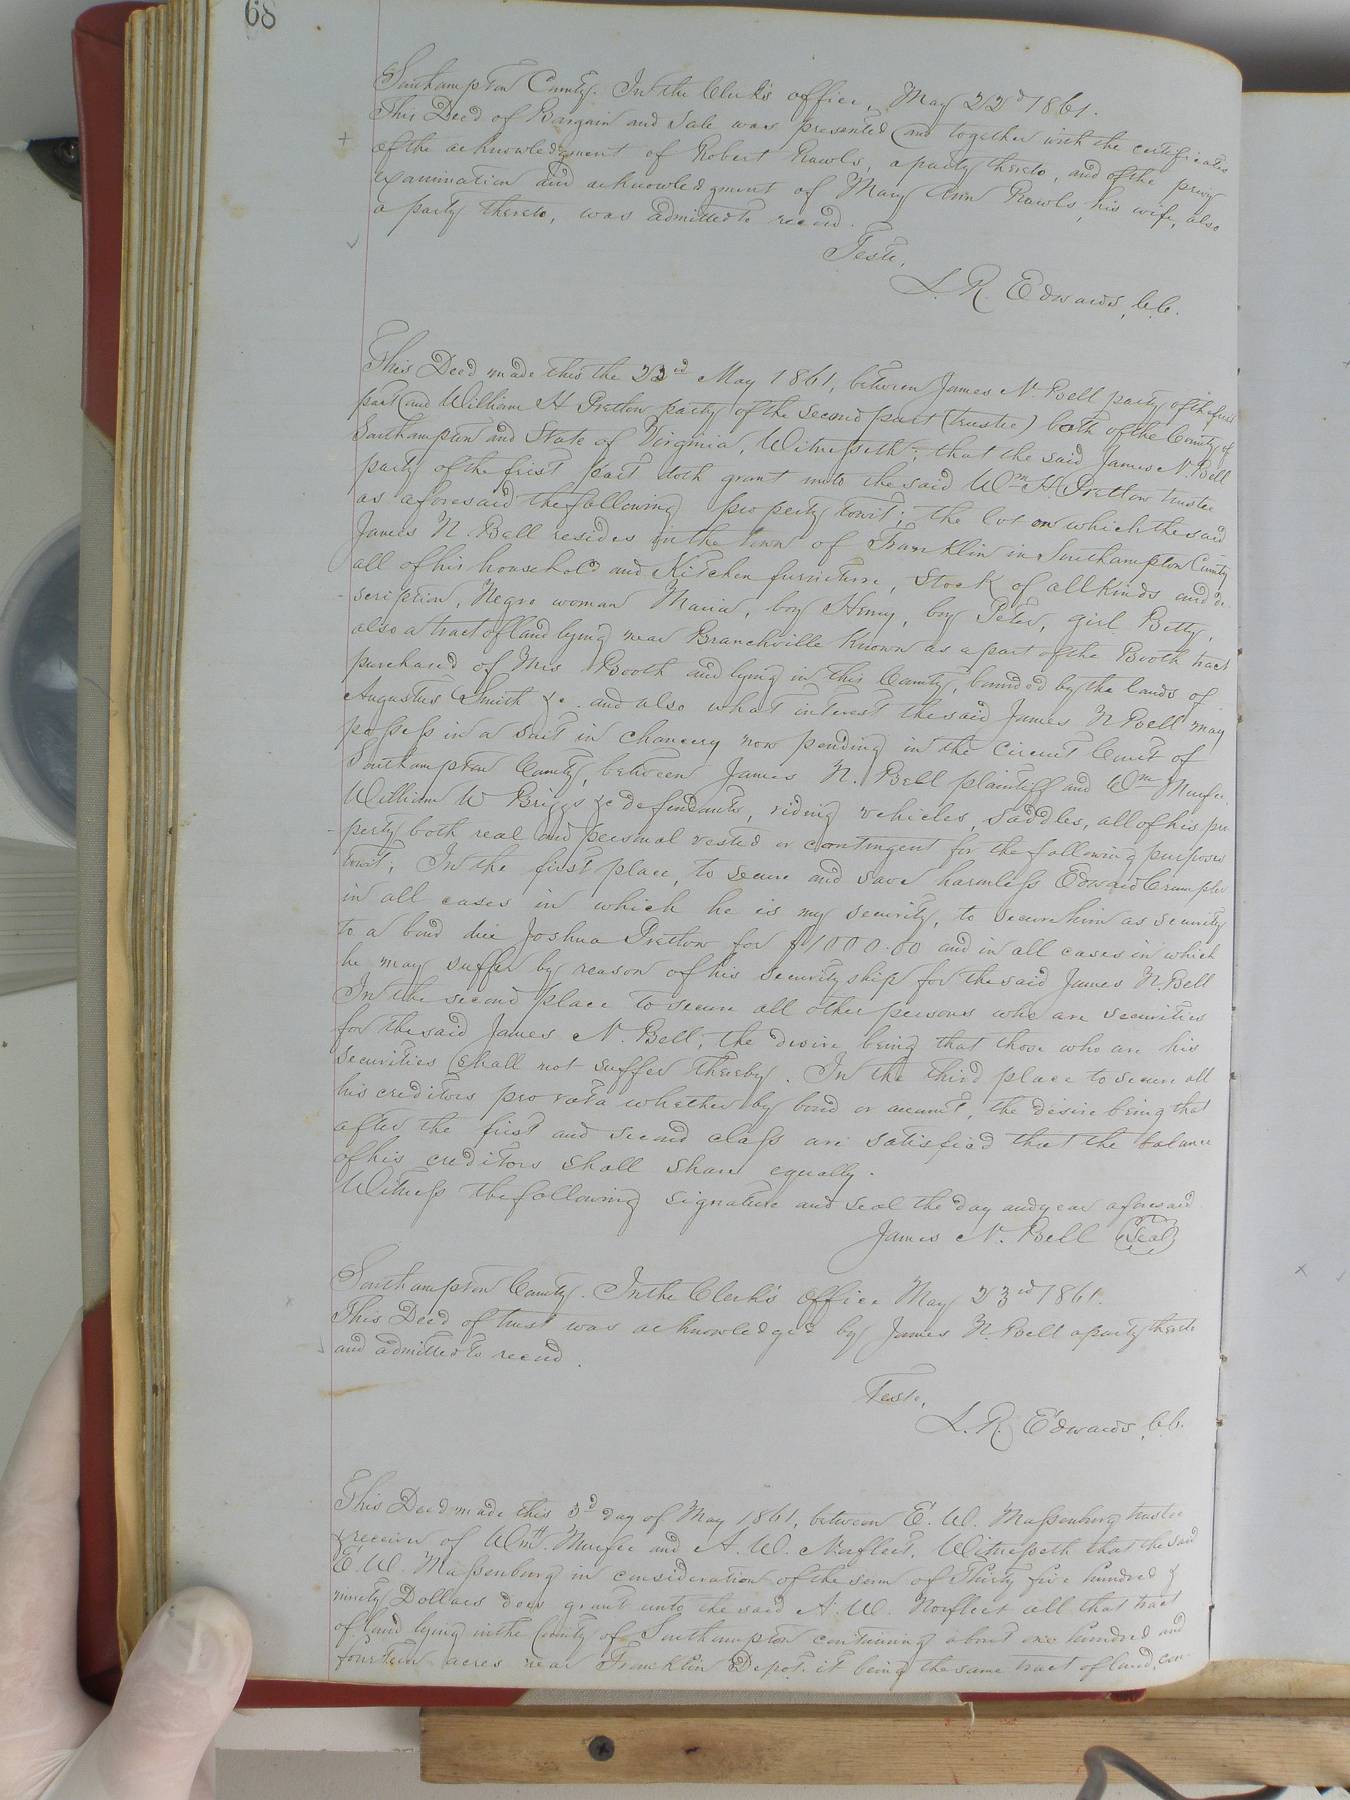 68
Southampton County. In the Clerk's office, May 22d 1861.
This Deed of Bargain and Sale was presented and together with the certificates
of the acknowledgment of Robert Rawls, a party thereto, and of the privy
examination and acknowledgment of Mary Ann Rawls, his wife, also
a party thereto, was admitted to record.
Teste,
L. R. Edwards, C.C.
This Deed made this the 23rd May 1861, between James N. Bell party of the first
part and William H Pretlow party of the second part (trustee) both of the County of
Southampton and State of Virginia, Witnesseth: that the said James N. Bell
party of the first part doth grant unto the said Wm H Pretlow trustee
as aforesaid the following property towit; the lot on which the said
James N. Bell resides in the town of Franklin in Southampton County
all of his household and Kitchen furniture, Stock of all kinds and de-
scription, Negro woman Maria, boy Henry, boy Peter, girl Betty,
also a tract of land lying near Branchville known as a part of the Booth tract
purchased of Mrs Booth and lying in this County, bounded by the lands of
Augustus Smith &c. and also what interest the said James N Bell may
possess in a suit in chancery now pending in the Circuit Court of
Southampton County, between James N. Bell plaintiff and Wm Murfee,
William W Briggs &c defendants, riding vehicles, saddles, all of his pro
perty both real and personal vested or contingent for the following purposes
towit; In the first place, to secure and save harmless Edward Crumpler
in all cases in which he is my security, to secure him as security
to a bond due Joshua Pretlow for $1000.00 and in all cases in which
he may suffer by reason of his securityship for the said James N. Bell
In the second place to secure all other persons who are securities
for the said James N. Bell, the desire being that those who are his
securities shall not suffer thereby. In the third place to secure all
his creditors pro rata whether by bond or account, the desire being that
after the first and second class are satisfied that the balance
of his creditors shall share equally.
Witness the following signature and seal the day and year aforesaid
James N. Bell (Seal)
Southampton County. In the Clerk's office May 23rd 1861.
This Deed of trust was acknowledged by James N. Bell a party thereto
and admitted to record.
Teste,
L. R. Edwards, C.C.
This Deed made this 3d day of May 1861, between E. W. Massenburg trustee
& receiver of Wm H. Murfee and A. W. Norfleet, Witnesseth that the said
E. W. Massenburg in consideration of the sum of Thirty five hundred &
ninety Dollars does grant unto the said A. W. Norfleet all that tract
of land lying in the County of Southampton containing about one hundred and
fourteen acres near Franklin Depot. it being the same tract of land, con-